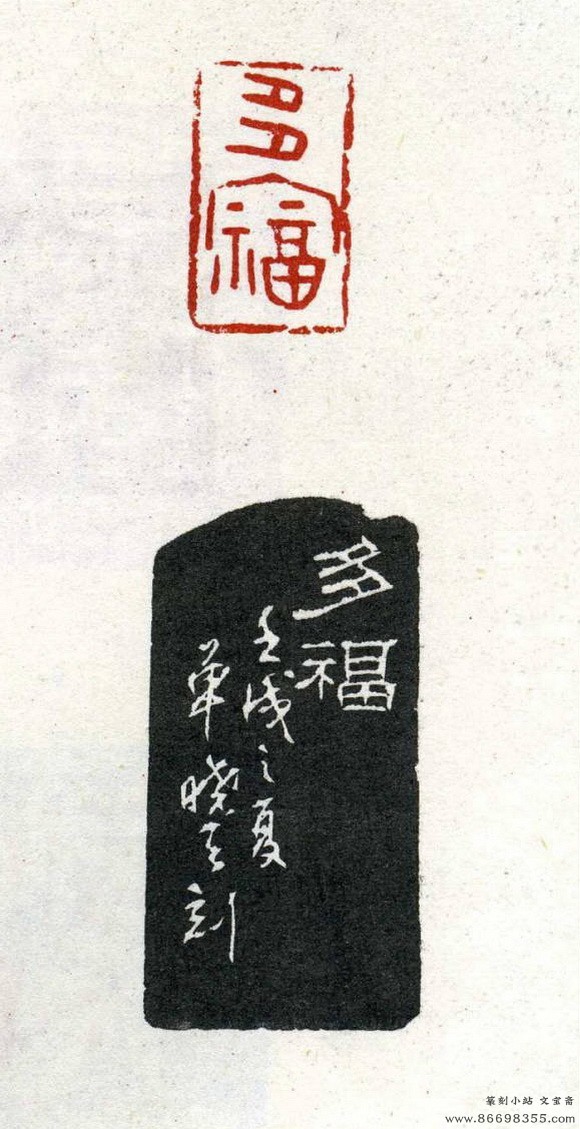 多福
多福
壬戌之夏
单晓天刻
篆刻小站 文宝斋
www.86698355.com